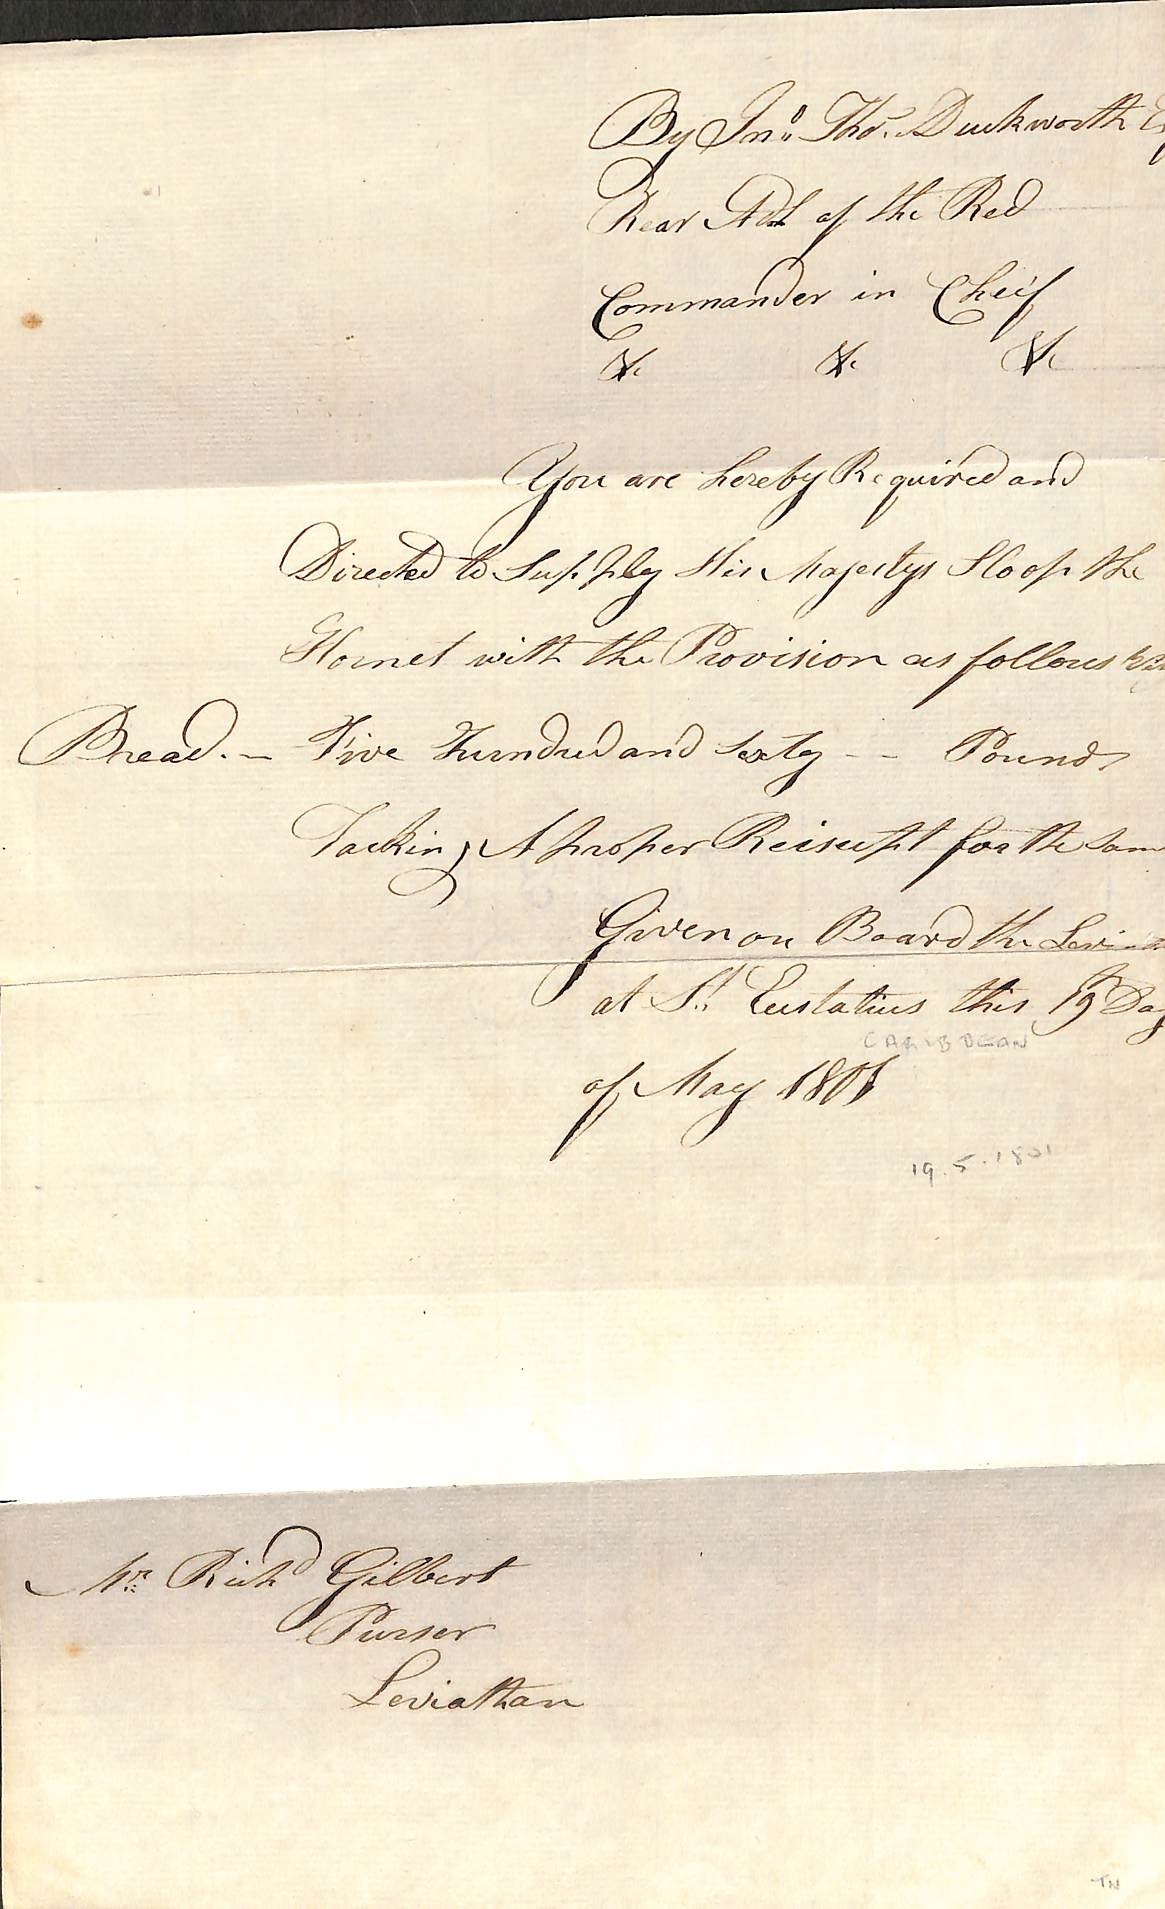 By Jno. Thos. Duckworth
Rear Adl of the Red
Commander in Cheif
&c &c &c
You are hereby Required and
Directed to Supply His Majestys Sloop the
Hornet with the Provision as follows
Bread. — Five Hundred and Sixty - - Pounds
Tacking A proper Reiseipt for the Sam
Given on Board the
at St. Eustatius this 19th Day
CARIBBEAN
of May 1801
19.5.1801
Mr. Richd Gilbert
Purser
Leviathan
TN